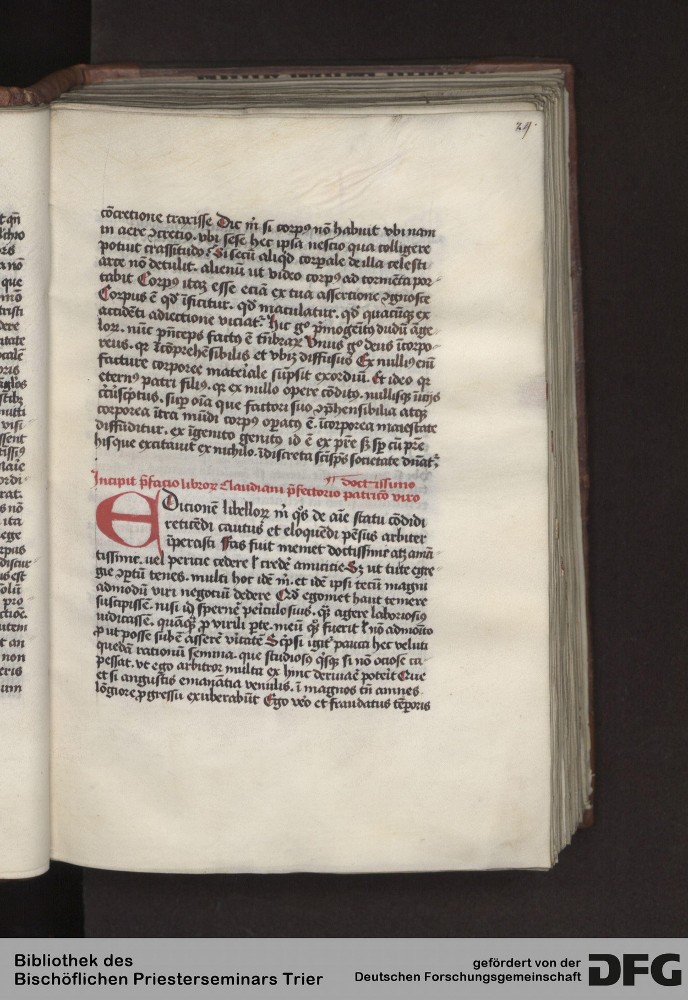 24
cōcretione traxisse Dic m̄ si corpꝰ nō habuit vbi nam
in aere ꝯcretio. vbi sese hec ipsa nescio qua colligere
potuit crassitudo? Si secū aliqd corpale de illa celesti
arce nō detulit. alienū ut video corpꝰ ad tormēta por-
tabit Corpꝰ itaqꝫ esse eciā ex tua assertione ꝯgnosce
Corpus ē qd īficitur. qd maculatur. qd quacūqꝫ ex
accidēti adiectione viciatʳ. hic gͦ pͥmogeniꝰ dudū āge-
loꝝ. nūc pͥnceps factꝰ ē tn̄braꝝ Vnus gͦ deus īcorpo-
reus. qꝛ īcōprehēsibilis et vbiqꝫ diffusus Ex nulliꝰ enī
facture corporee materiale sūpsit exordiū. Et ideo qꝛ
eternꝰ patri filiꝰ. qꝛ ex nullo opere cōditꝰ. nullisqꝫ
circūscͥptus. suꝑ oīa que factor suo ꝯpͥhensibilia atqꝫ
corporea ītra mūdi corpꝰ opatꝰ ē. īcorporea maiestate
diffūditur. ex īgenito genitꝰ id ē ex pr̄e ꝫ sp̄ cū pr̄e
hisque excitauit ex nichilo. īdiscreta societate dn̄atʳ.
Incipit p̄facio libroꝝ Claudiani p̄fectorio patricō doctissimo viro
EDicionē libelloꝝ m̄ qͦs de aīe statu cōdidi
reticēdi cautus et eloquēdi pēsus arbiter
īꝑasti Fas fuit memet doctissime atqꝫ amā
tissime. vel pericie cedere ł credē amicitie Sꝫ ut tute egre
gie ꝯptū tenes. multi hoc idē m̄. et idē ipsi tecū magni
admodū viri negotiū dedere Qd egomet haut temere
suscepissē. nisi id spernē piculosiꝰ. qͣꝫ agere laboriosiꝰ
iudicassē. quāqͣꝫ ꝓ virili pte. meū qͣꝫ fuerit ł nō admōito
ꝓ ut posse subē asserē vitatē Scͥpsi igitʳ pauca hec veluti
quedā rationū semina. que studiosꝰ qͥsqꝫ si nō ociose ca-
pessat. vt ego arbitror multa ex hinc deriuare poterit Que
et si angustis emanātia venulis. ī magnos tn̄ amnes
lōgiore ꝓgressu exuberabūt Ego veͦ et fraudatus tēporis
Bibliothek des
Bischöflichen Priesterseminars Trier
gefördert von der
Deutschen Forschungsgemeinschaft
DFG